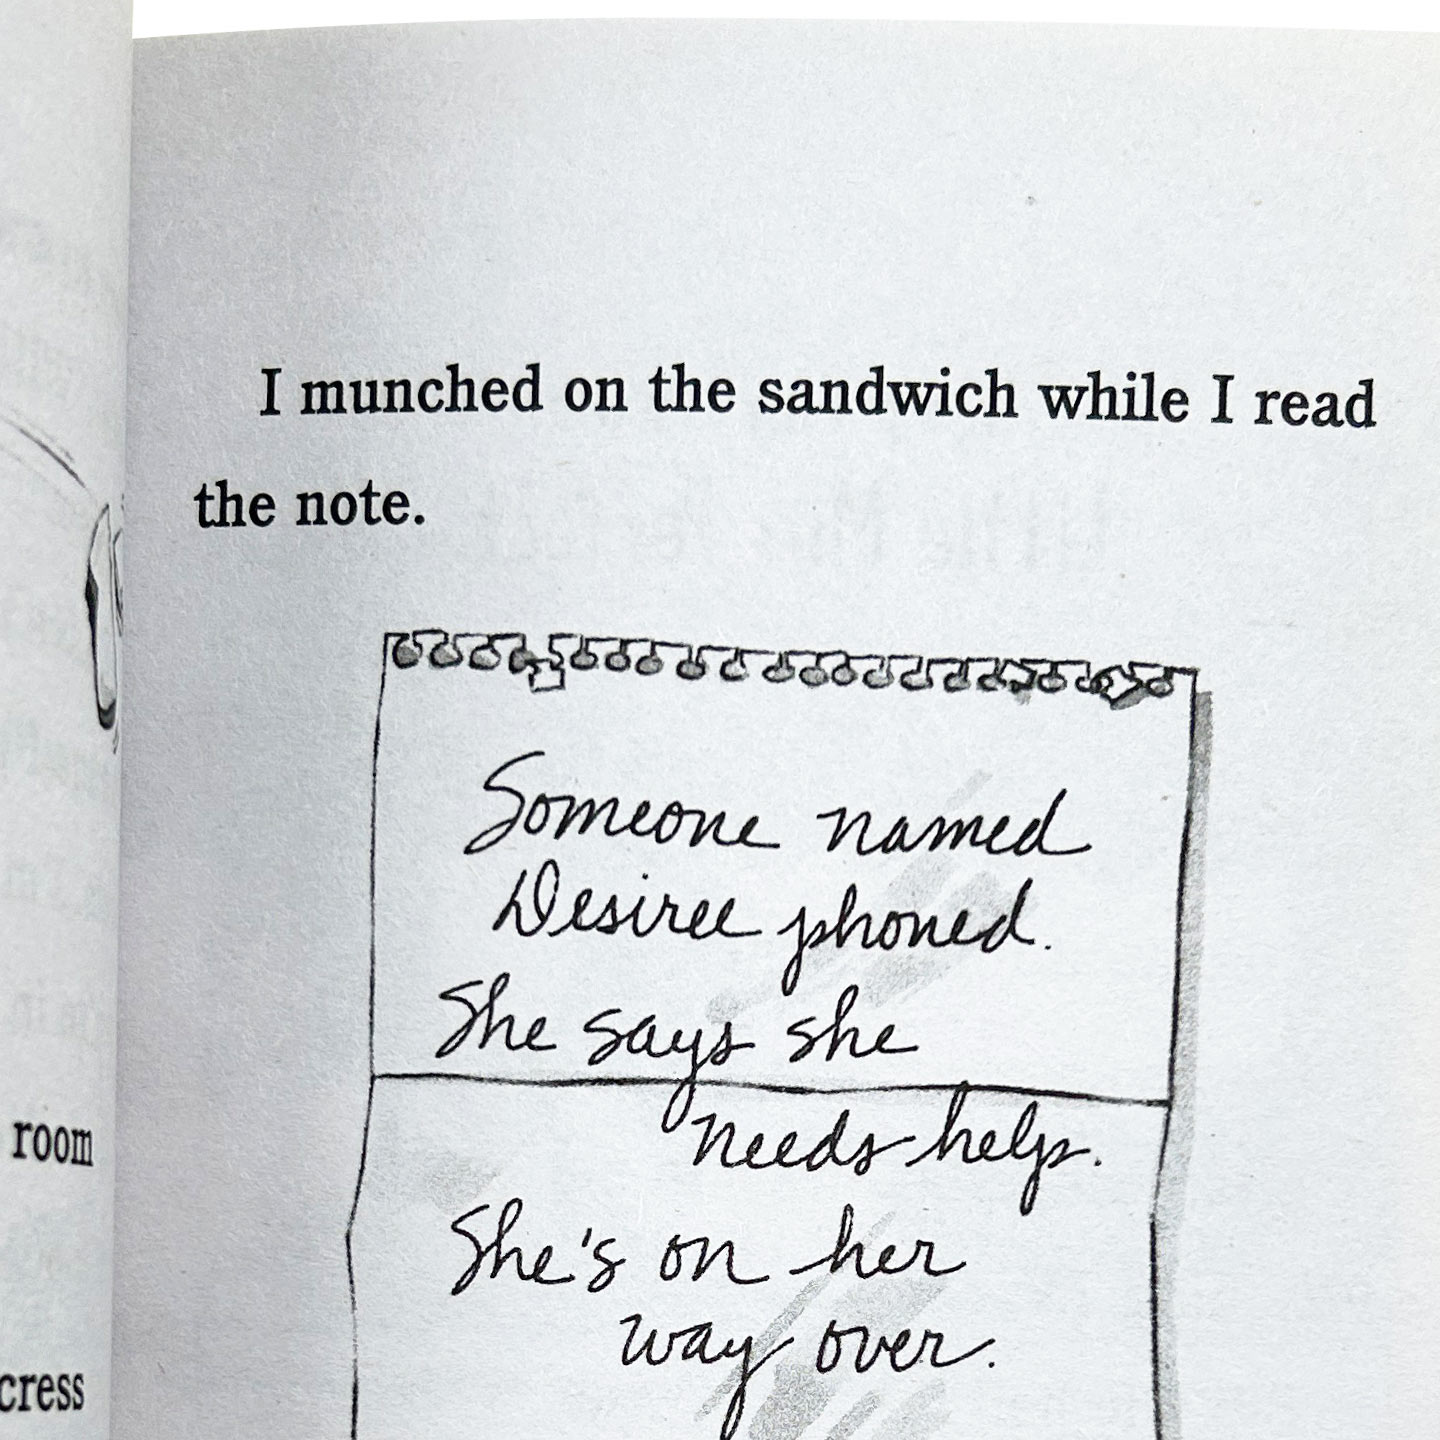 room
cress
I munched on the sandwich while I read
the note.
Someone named
Desiree phoned.
She says she
needs help.
She's on her
way over.